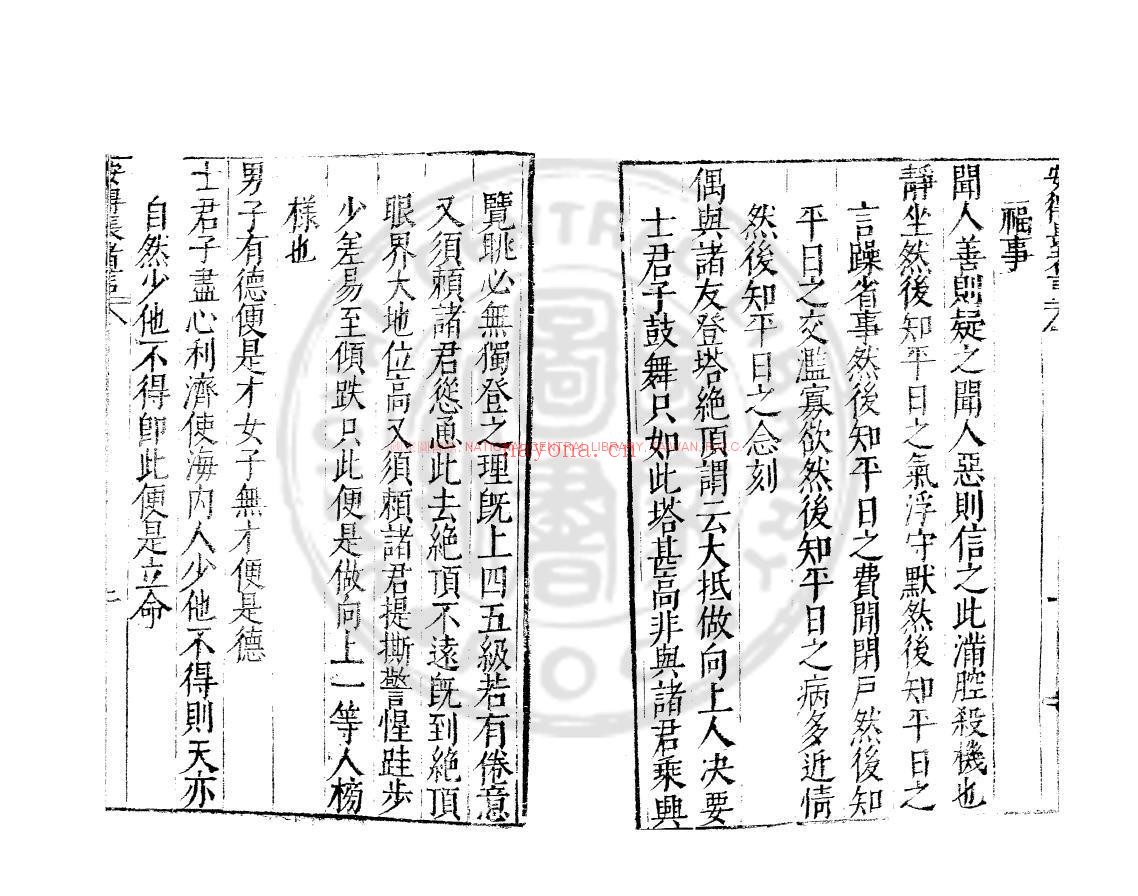 福事
聞人善則疑之聞人惡則信之此滿腔殺機也
靜坐然後知平日之氣浮守默然後知平日之
言躁省事然後知平日之費閒閉戸然後知
平日之交濫寡欲然後知平日之病多近情
然後知平日之念刻
偶與諸友登塔絶頂謂云大抵做向上人决要
士君子鼓舞只如此塔甚高非與諸君乘興
覽眺必無獨登之理旣上四五級若有倦意
又須賴諸君慫恿此去絶頂不遠旣到絶頂
眼界大地位高又須賴諸君提撕警惺跬步
少差易至傾跌只此便是做向上一等人榜
樣也
男子有德便是才女子無才便是德
士君子盡心利濟使海内人少他不得則天亦
自然少他不得即此便是立命
安得長者言
NATIONAL CENTRAL LIBRARY, TAIWAN, R.O.C.
nayona.cn